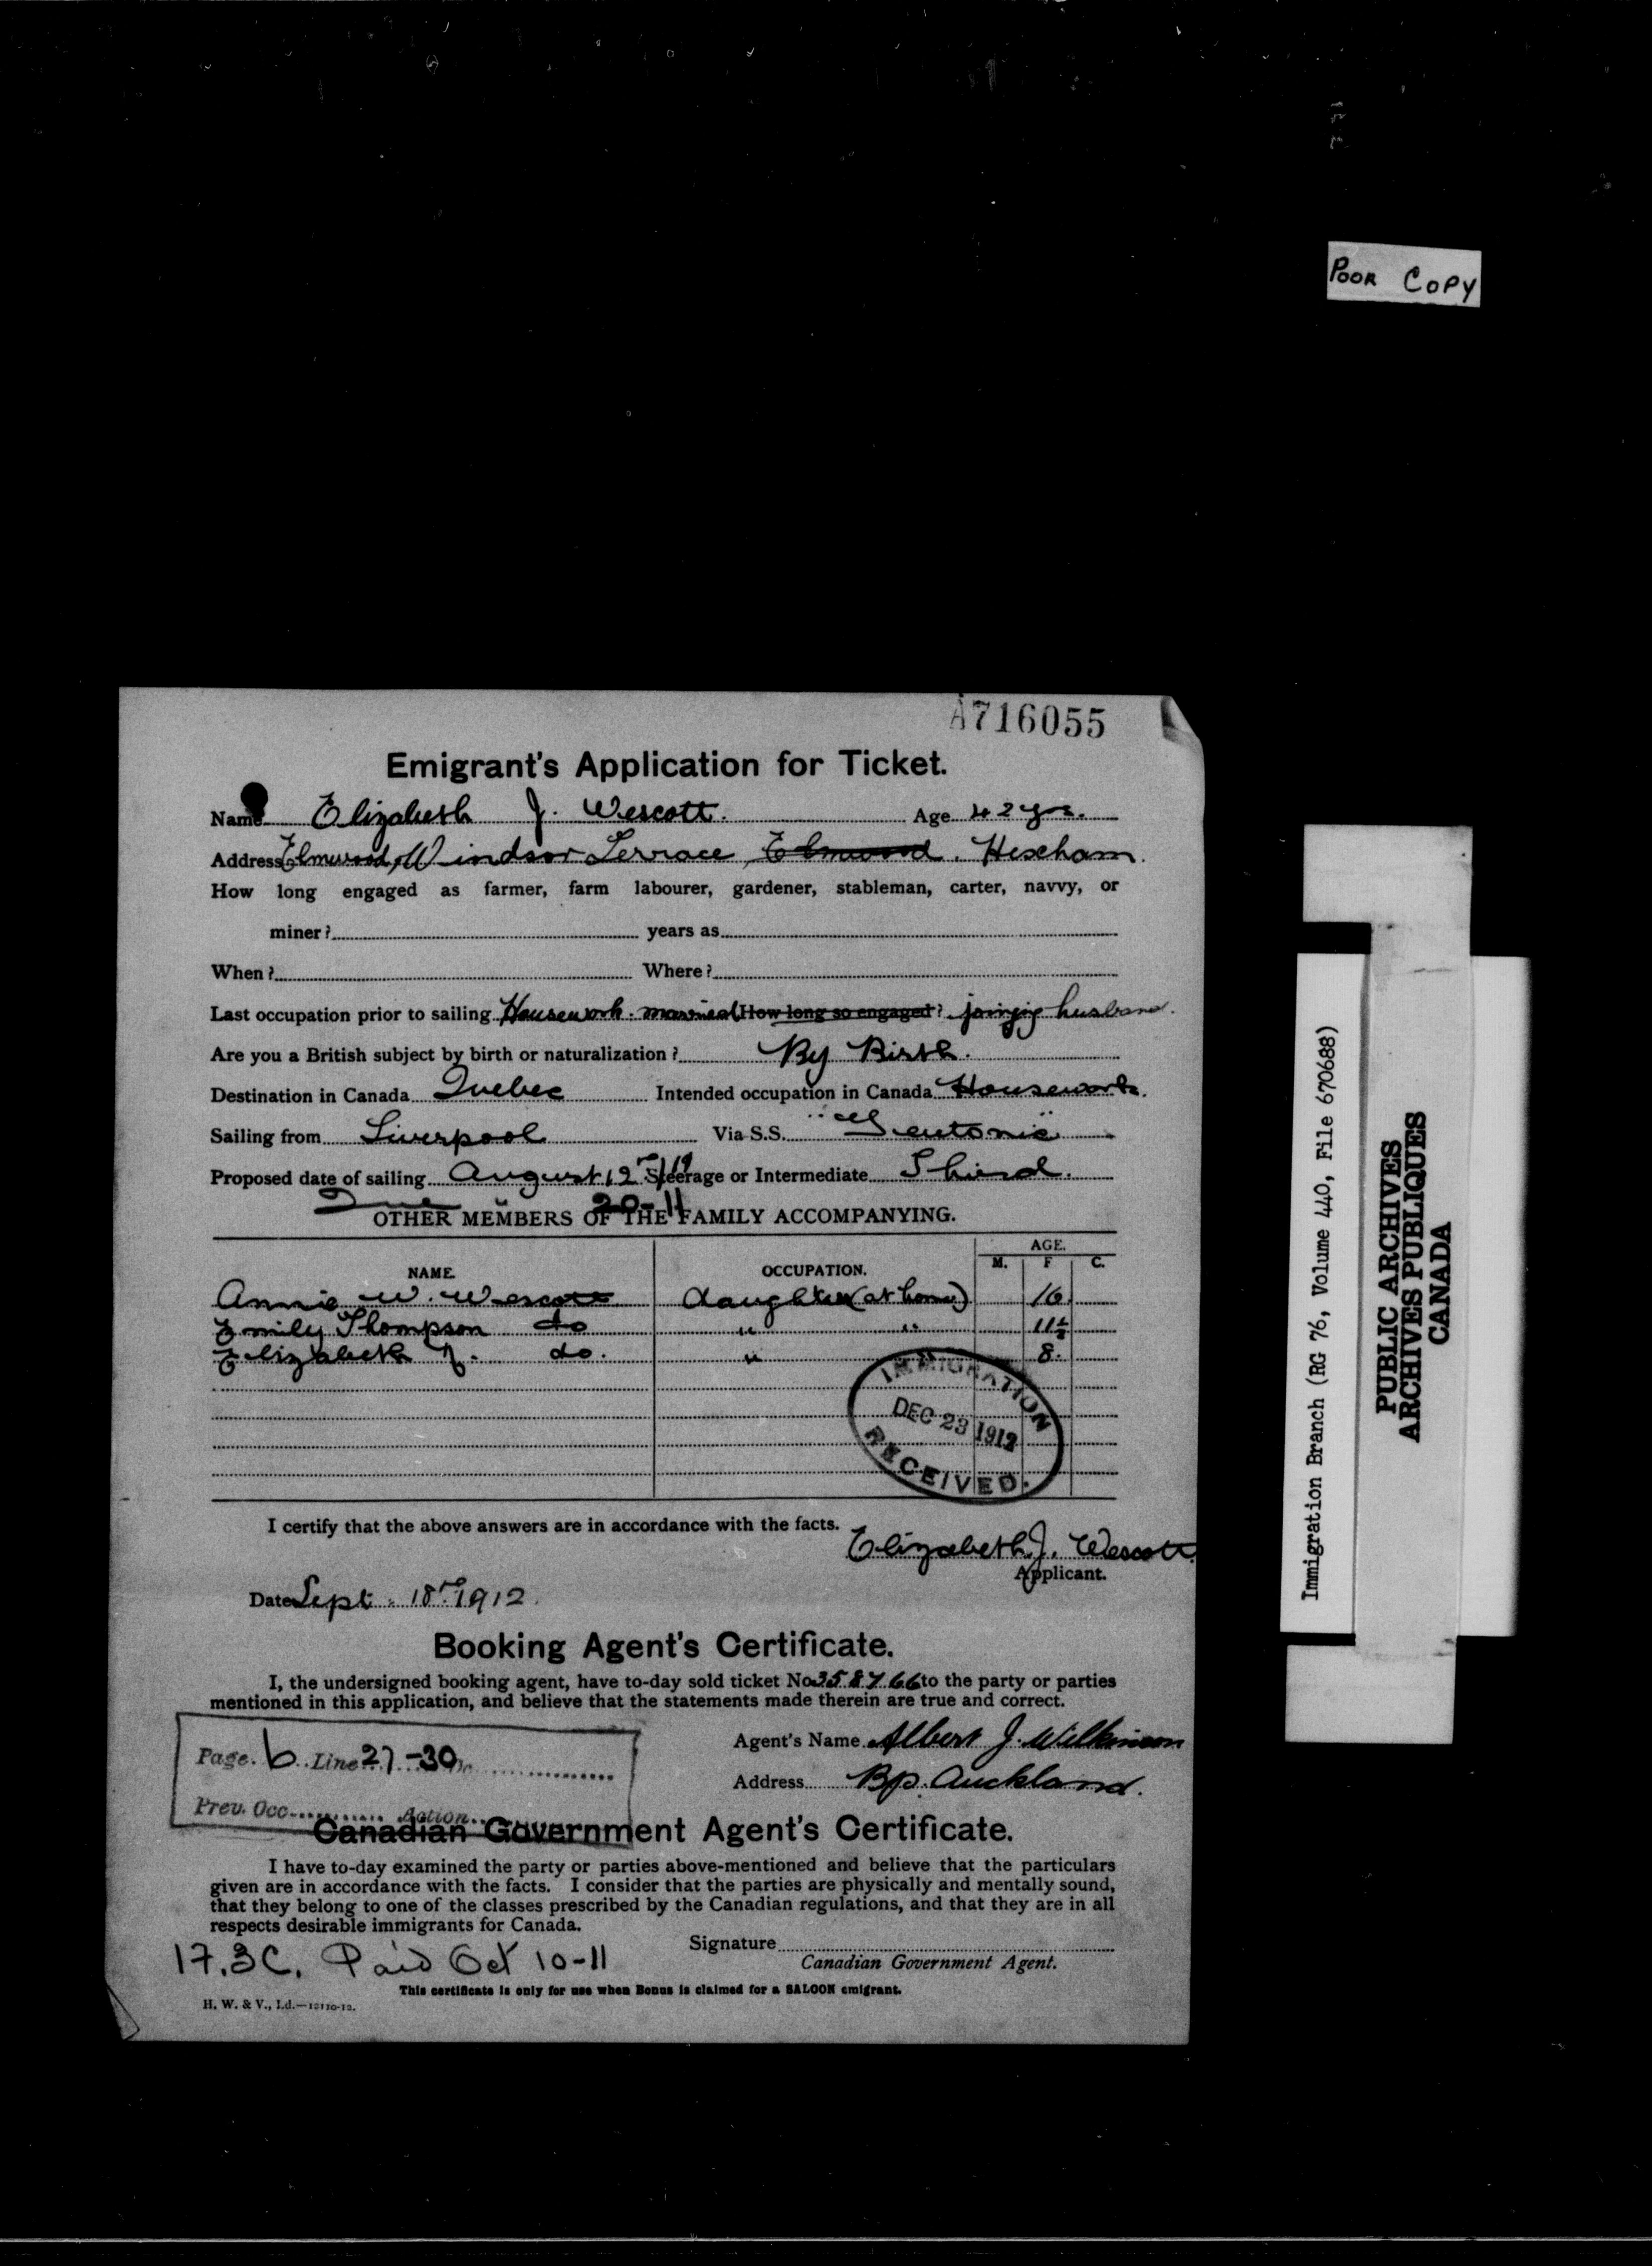 POOR COPY
A716055
Emigrant's Application for Ticket.
Name Elizabeth J. Wescott. Age 42 yrs.
Address Elmwood, Windsor Terrace, Elmwood. Hexham.
How long engaged as farmer, farm labourer, gardener, stableman, carter, navvy, or
miner? years as
When? Where?
Last occupation prior to sailing Housework. married How long so engaged? joining husband.
Are you a British subject by birth or naturalization? By Birth.
Destination in Canada Quebec Intended occupation in Canada Housework.
Sailing from Liverpool Via S.S. "Teutonic"
Proposed date of sailing August Steerage or Intermediate Third.
20-11
OTHER MEMBERS OF THE FAMILY ACCOMPANYING.
AGE.
NAME. OCCUPATION. M. F C.
Annie W. Wescott daughter (at home) 16
Emily Thompson do " " 11½
Elizabeth J. do. " 8.
IMMIGRATION
DEC 23 1912
RECEIVED.
I certify that the above answers are in accordance with the facts.
Elizabeth J. Wescott
Applicant.
Date Sept. 18th 1912.
Booking Agent's Certificate.
I, the undersigned booking agent, have to-day sold ticket No 358766 to the party or parties
mentioned in this application, and believe that the statements made therein are true and correct.
Agent's Name Albert J. Wilkinson
Address Bp. Auckland.
Page. 6 Line 27-30
Prev. Occ. Action
Canadian Government Agent's Certificate.
I have to-day examined the party or parties above-mentioned and believe that the particulars
given are in accordance with the facts. I consider that the parties are physically and mentally sound,
that they belong to one of the classes prescribed by the Canadian regulations, and that they are in all
respects desirable immigrants for Canada.
Signature
Canadian Government Agent.
17.3C. Paid Oct 10-11
This certificate is only for use when Bonus is claimed for a SALOON emigrant.
H. W. & V., Ld.
Immigration Branch (RG 76, Volume 440, File 670688)
PUBLIC ARCHIVES
ARCHIVES PUBLIQUES
CANADA